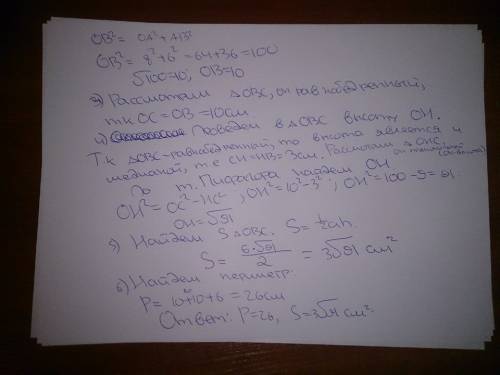 OB² = OA² + AB²
OB² = 8² + 6² = 64+36 = 100
√100=10; OB=10
3) Рассмотрим △OBC, он равнобедренный,
т.к OC = OB = 10см.
4) Проведем в △OBC высоту OH.
Т.к △OBC-равнобедренный, то высота является и
медианой, т.е CH=HB=3см. Рассмотрим △OHC,
По т. Пифагора найдем OH
OH² = OC² - HC² ; OH² = 10² - 3² ; OH² = 100 - 9 = 91.
OH = √91
5) Найдем S △OBC. S = ½ah.
S = 6·√91 / 2 = 3√91 см²
6) Найдем периметр.
P = 10+10+6 = 26см
Ответ: P=26, S=3√91 см².